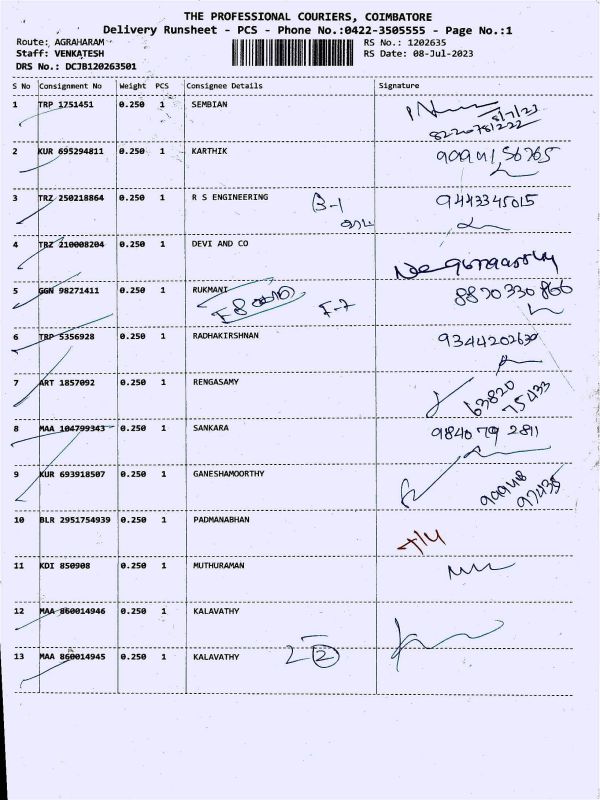 THE PROFESSIONAL COURIERS, COIMBATORE
Delivery Runsheet - PCS - Phone No.:0422-3505555 - Page No.:1
Route: AGRAHARAM RS No.: 1202635
Staff: VENKATESH RS Date: 08-Jul-2023
DRS No.: DCJB120263501
S No Consignment No Weight PCS Consignee Details Signature
1 TRP 1751451 0.250 1 SEMBIAN
8/7/23
2 KUR 695294811 0.250 1 KARTHIK
3 TRZ 250218864 0.250 1 R S ENGINEERING B-1 9443345015
4 TRZ 210008204 0.250 1 DEVI AND CO
5 GGN 98271411 0.250 1 RUKMANI 8870330866
F-7
6 TRP 5356928 0.250 1 RADHAKIRSHNAN 9344202630
7 ART 1857092 0.250 1 RENGASAMY 63820
75433
8 MAA 104799343 0.250 1 SANKARA 9840 79 2811
9 KUR 693918507 0.250 1 GANESHAMOORTHY 99948
97435
10 BLR 2951754939 0.250 1 PADMANABHAN
11 KDI 850908 0.250 1 MUTHURAMAN
12 MAA 860014946 0.250 1 KALAVATHY
13 MAA 860014945 0.250 1 KALAVATHY 2